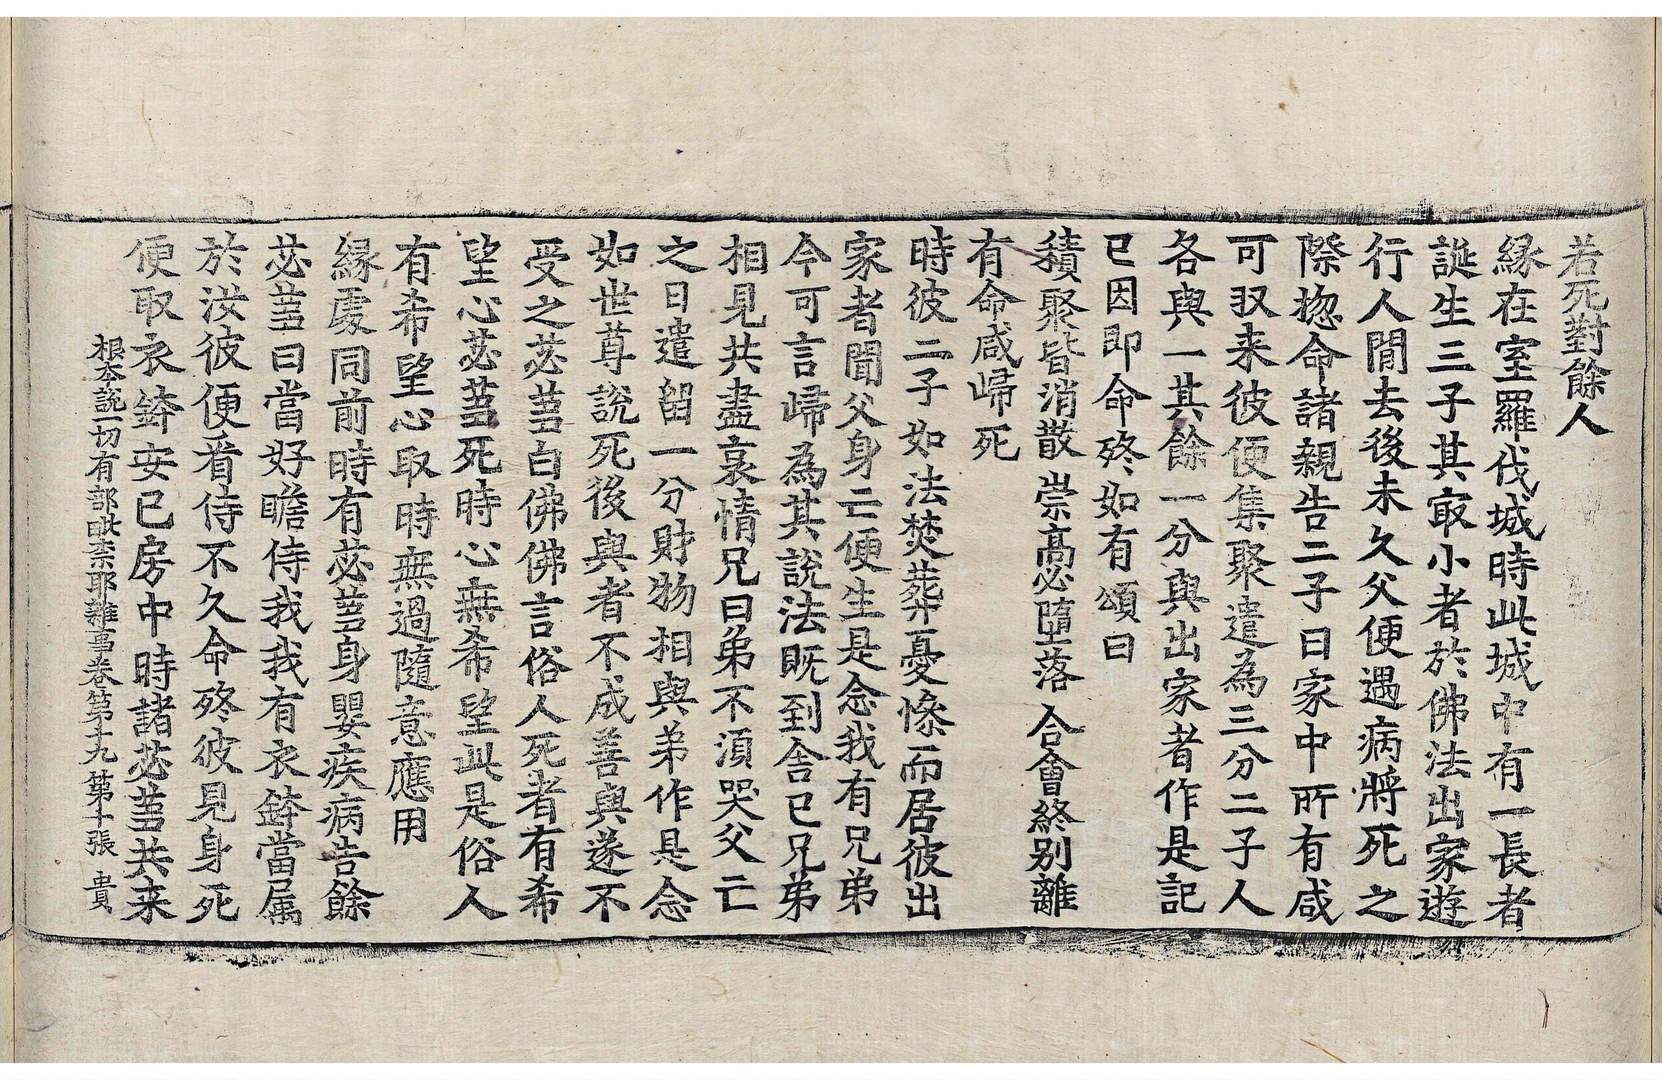 若死對餘人
縁在室羅伐城時此城中有一長者
誕生三子其㝡小者於佛法出家遊
行人閒去後未久父便遇病將死之
際揔命諸親告二子曰家中所有咸
可収来彼便集聚遣為三分二子人
各與一其餘一分與出家者作是記
已因即命終如有頌曰
積聚皆消散 崇高必墮落 合會終別離
有命咸歸死
時彼二子如法焚葬憂慘而居彼出
家者聞父身亡便生是念我有兄弟
今可言歸為其說法既到舎已兄弟
相見共盡哀情兄曰弟不湏哭父亡
之日遣留一分財物相與弟作是念
如世尊說死後與者不成善與遂不
受之苾蒭白佛佛言俗人死者有希
望心苾蒭死時心無希望此是俗人
有希望心取時無過隨意應用
縁處同前時有苾蒭身嬰疾病告餘
苾蒭曰當好瞻侍我我有衣鉢當属
於汝彼便看侍不久命終彼見身死
便取衣鉢安已房中時諸苾蒭共来
根本說一切有部毗柰耶雜事卷第十九 第十張 貴